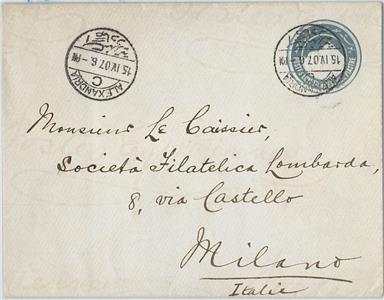 ALEXANDRIA
C
15 IV.07.6-PM
ALEXANDRIA
15 IV.07.6-PM
Monsieur Le Caissier,
Società Filatelica Lombarda,
8, via Castello
Milano
Italie